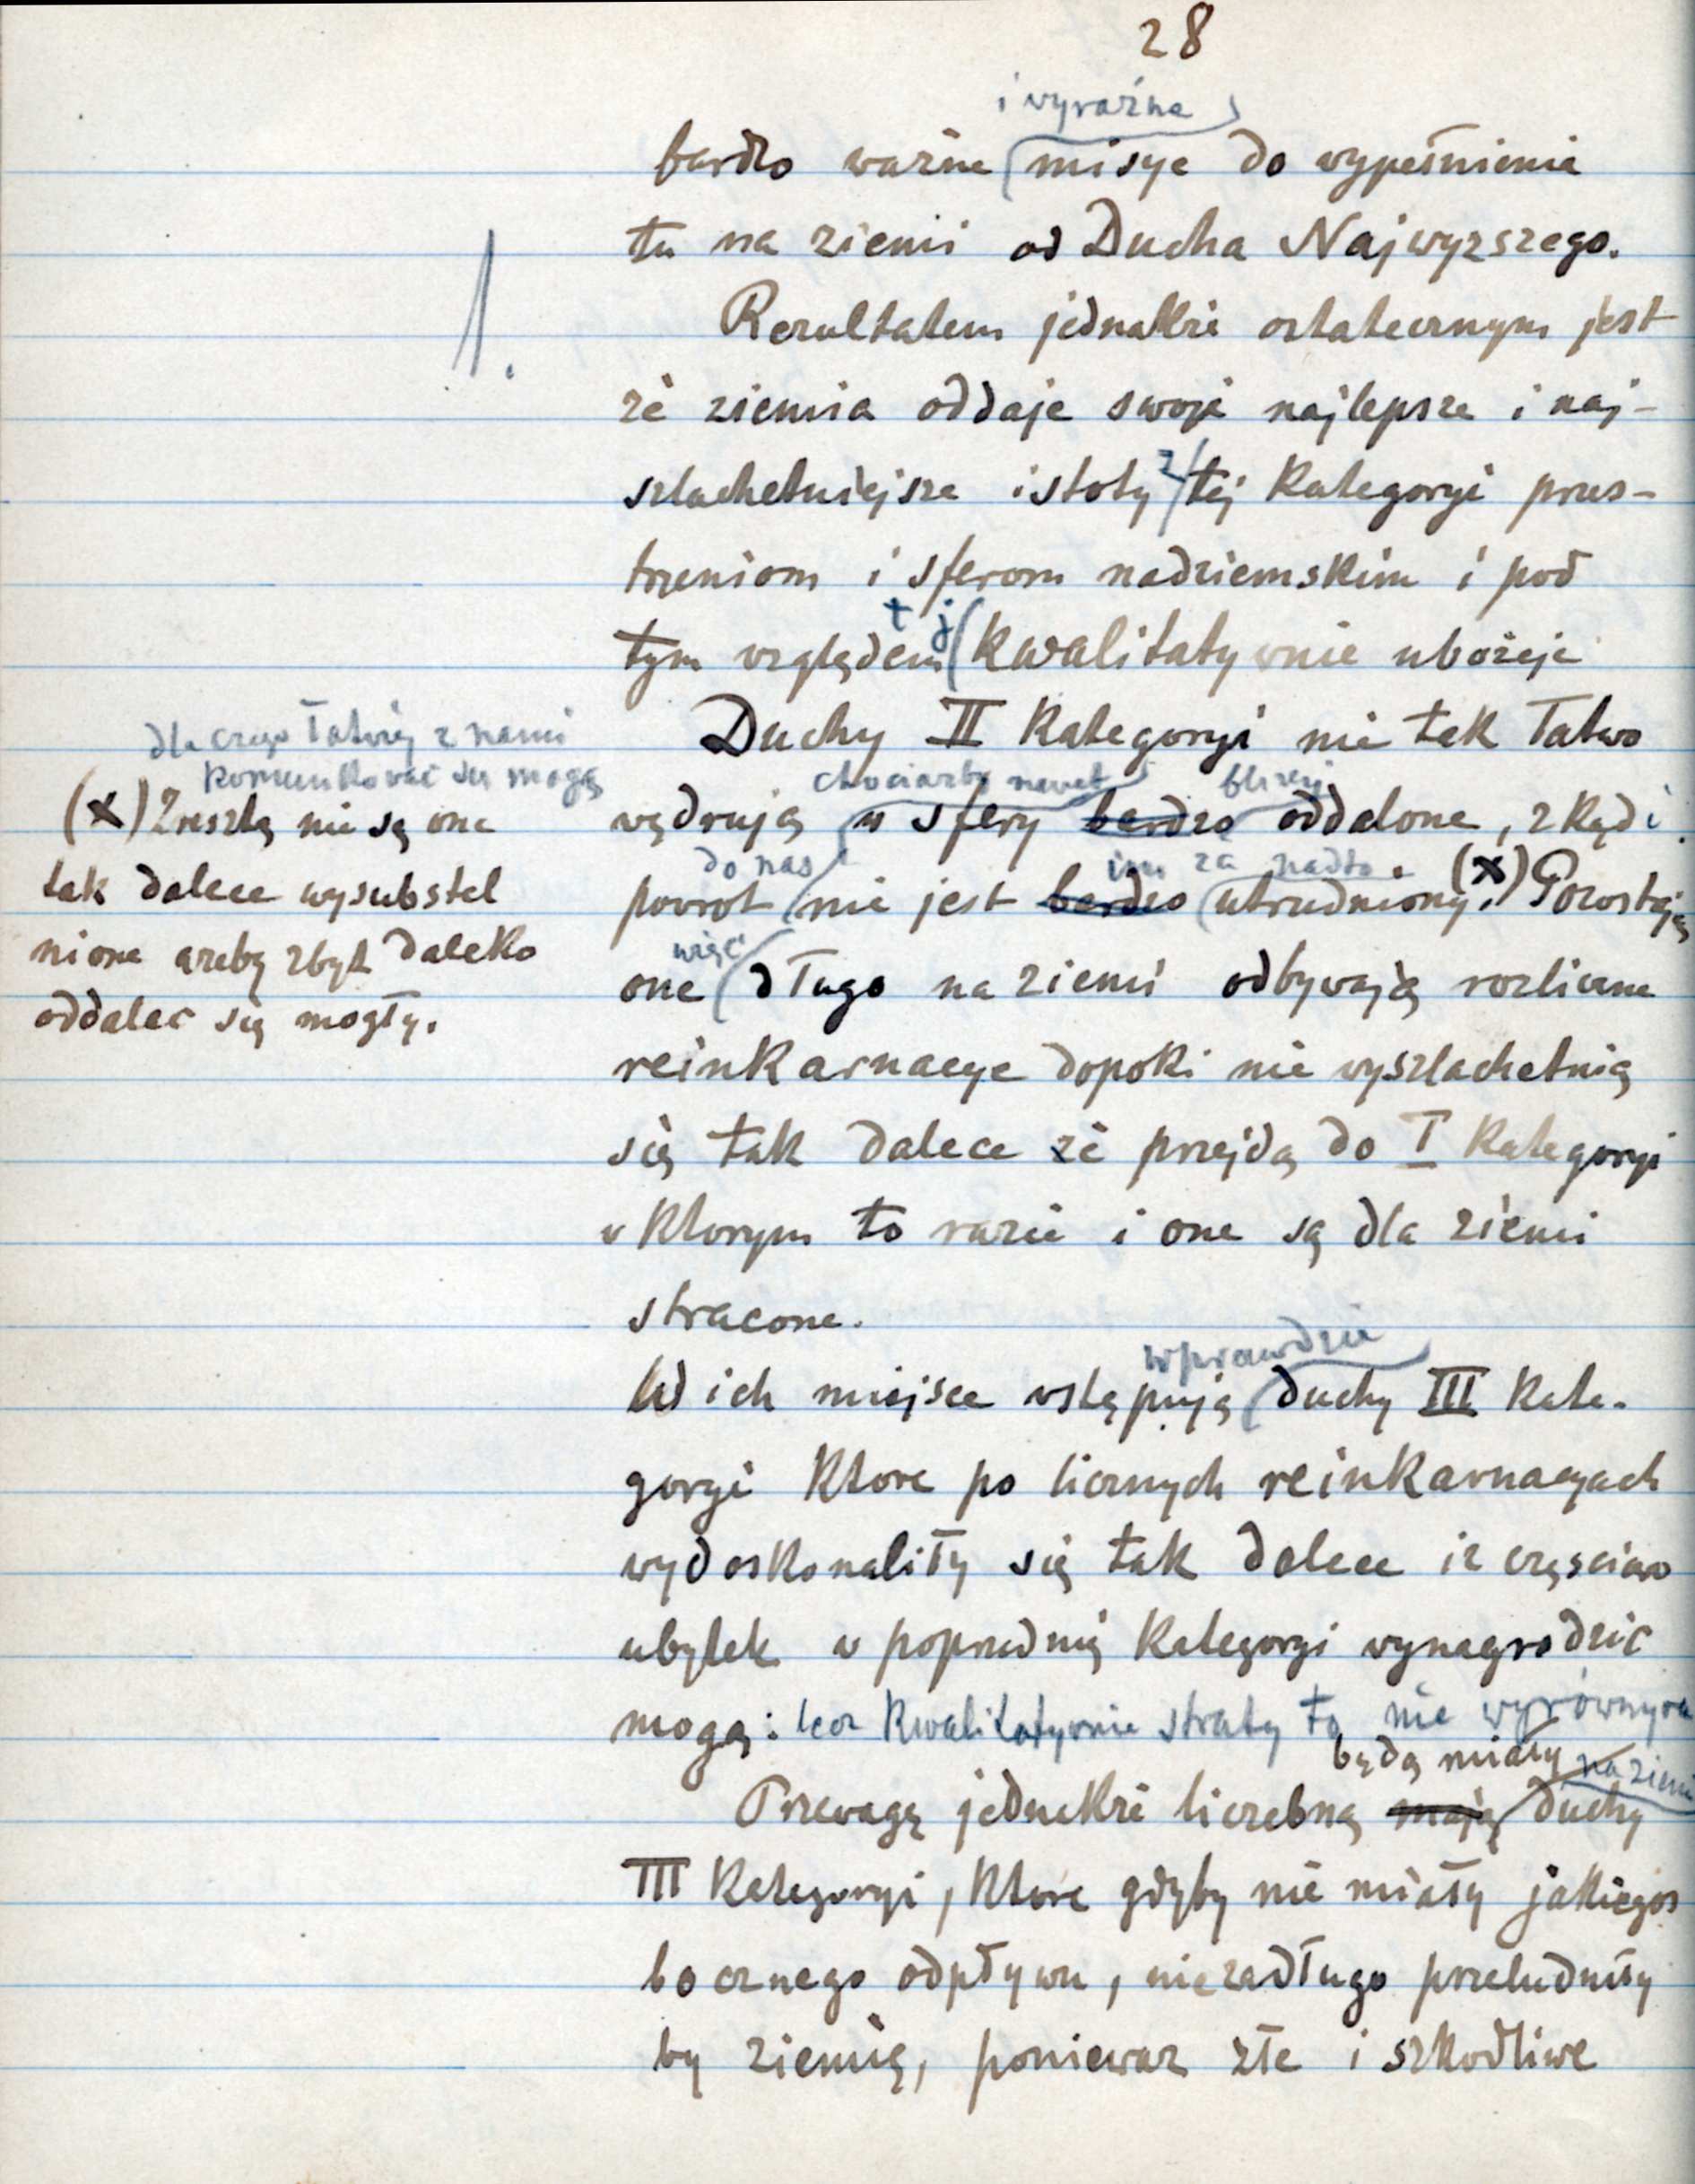 28
i wyraźne
bardzo ważne misye do wypełnienia
tu na ziemi od Ducha Najwyższego.
1.
Rezultatem jednakże ostatecznym jest
że ziemia oddaje swoje najlepsze i naj-
szlachetniejsze istoty z tej kategoryi przes-
trzeniom i sferom nadziemskim i pod
t j
tym względem kwalitatywnie ubożeje
Duchy II kategoryi nie tak łatwo
chociażby nawet bliżej
wędrują w sfery bardzo oddalone, zkąd i
do nas im za nadto
powrot nie jest bardzo utrudniony. (x) Pozostają
więc
one długo na ziemi odbywają rozliczne
reinkarnacye dopoki nie wyszlachetnią
się tak dalece że przejdą do I kategoryi
w ktorym to razie i one są dla ziemi
stracone.
wprawdzie
W ich miejsce wstępują duchy III kate-
goryi ktore po licznych reinkarnacyach
wydoskonality się tak dalece iz częsciowo
ubytek w poprzednią kategoryi wynagrodzic
mogą: lecz kwalitatywnie straty tą nie wyrównywa
będą miały na ziemi
Przewagę jednakże liczebną mają duchy
III kategoryi, ktore gdyby nie miały jakiegos
bocznego odpływu, niezadługo przeludniły
by ziemię, poniewaz złe i szkodliwe
dla czego łatwiej z nami
komunikować się mogą
(x) Zresztą nie są one
tak dalece wysubstel
nione azeby zbyt daleko
oddalac się mogły.